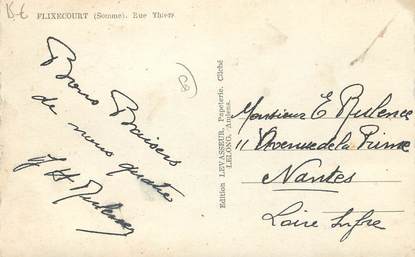 FLIXECOURT (Somme). Rue Thiers
Bons Baisers
de nous quatre
Edition LEVASSEUR, Papeterie. Cliché
LELONG, Amiens.
Monsieur E
11 Avenue de la
Nantes
Loire Infre